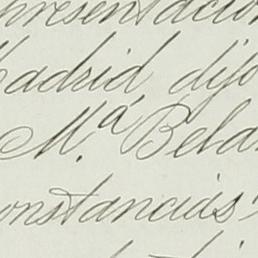 presentación
Madrid, dijo
M.ª Bela
onstancias